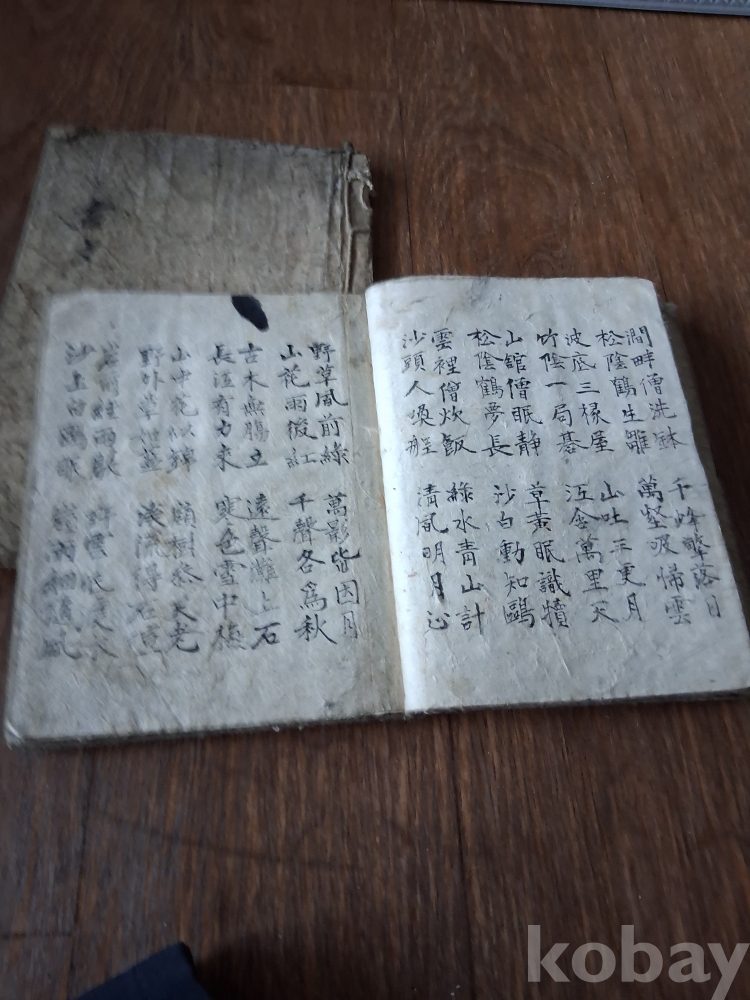 澗畔僧洗鉢
松陰鶴生雛
波底三椽屋
竹陰一局碁
山館僧眠靜
松陰鶴夢長
雲裡僧炊飯
沙頭人喚舡
千峰擎落日
萬壑吸歸雲
山吐三更月
江含萬里天
草黃眠識犢
沙白動知鷗
綠水青山計
清風明月心
野草風前綠
山花雨後紅
古木無膓立
長江有力來
山中花似錦
野外草如藍
前雨歇
沙上白鷗眠
萬影皆因月
千聲各爲秋
遠聲灘上石
寒色雪中梅
樹天老
流得石
野雲
雨
kobay